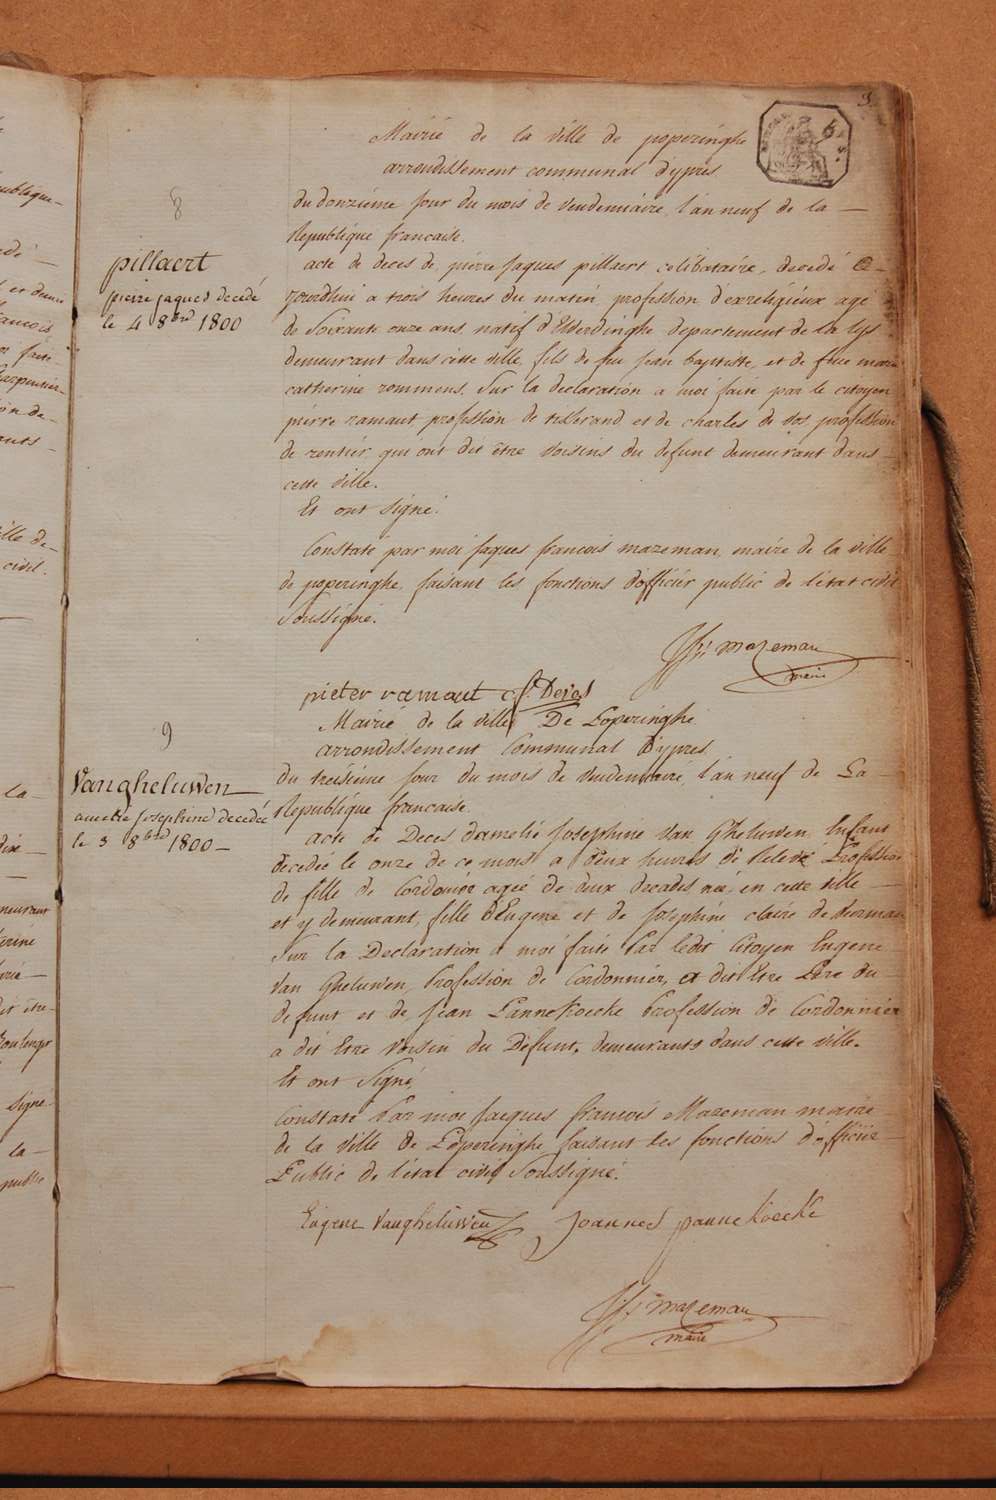 3
Mairié de la ville de poperinghe
arrondissement communal d'ypres
8
du donziéme jour du mois de vendemiaire l'an neuf de la —
Republique francaise.
pillaert
pierre jaques decedé
le 4 8bre 1800
acte de deces de pierre jaques pillaert celibataire, decedé
jourdhui a trois heures du matin, profession d'exreligiéux agé
de Soixante onze ans natif d'Elverdinghe departement de la lys
demeurant dans cette ville, fils de feu jean baptiste, et de feue marie
catherine rommens. Sur la declaration a moi faite par le citoyen
pierre ramaut profession de tisserand et de charles de vos profession
de rentiér qui ont dit être voisins du defunt demeurant dans —
cette ville.
Et ont signé.
Constaté par moi jaques francois mazeman, maire de la ville
de poperinghe, faisant les fonctions d'officiér public de l'état civil
Soussigné.
mazeman
maire
pieter ramaut C. f. Devos
9
Mairié de la ville De Poperinghe
arrondissement Communal D'ypres
du treisiéme jour du mois de vendemiairé l'an neuf de La —
Republique francaise.
Vangheluwen
amelie josephine decedée
le 3 8bre 1800 —
acte de Deces d'amelié Josephine Van Gheluwen, Enfant
decedéé le onze de ce mois a deux heures de Profession
de fille de Cordonier agéé de deux decades néé en cette ville —
et y demeurant, fille d'Eugene et de Josephine claire de
Sur la Declaration a moi faite Par ledit Citoyen Eugene
Van Gheluwen, Profession de Cordonnier, a dit Etre Pere du
defunt et de Jean Pannekoecke Profession de Cordonniér
a dit Etre voisin du Défunt, demeurants dans cette ville.
Et ont Signé,
Constaté Par moi jacques francois Mazeman maire
de la Ville de Poperinghe faisant les fonctions d'officiér
Public de l'état civil Soussigné.
Eugene Vangheluwen Joannes pannekoecke
mazeman
maire